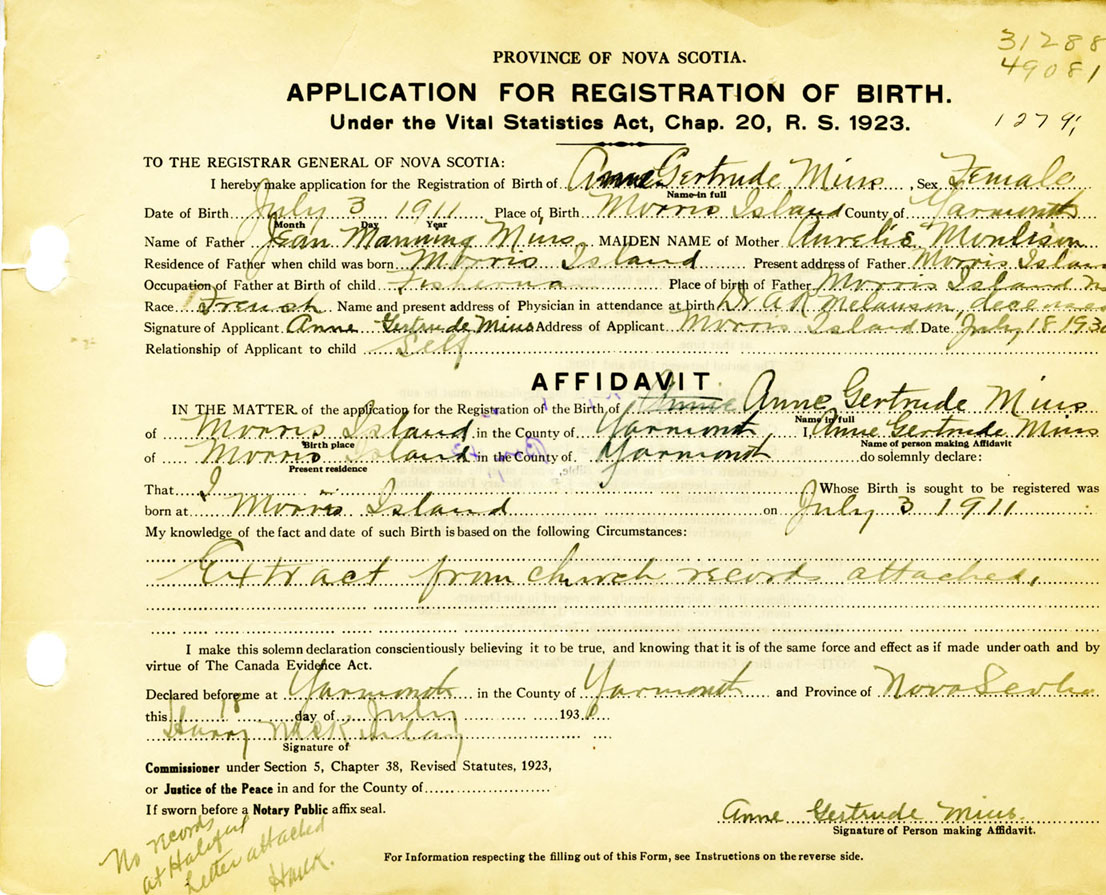 31288
49081
1279
PROVINCE OF NOVA SCOTIA.
APPLICATION FOR REGISTRATION OF BIRTH.
Under the Vital Statistics Act, Chap. 20, R. S. 1923.
TO THE REGISTRAR GENERAL OF NOVA SCOTIA:
I hereby make application for the Registration of Birth of Anne Gertrude Mius, Sex Female
Name in full
Date of Birth July 3 1911 Place of Birth Morris Island County of Yarmouth
Month Day Year
Name of Father Jean Manning Mius MAIDEN NAME of Mother Aurelie Moulison
Residence of Father when child was born Morris Island Present address of Father Morris Island
Occupation of Father at Birth of child Fisherman Place of birth of Father Morris Island NS
Race French Name and present address of Physician in attendance at birth Dr A R Melanson, deceased
Signature of Applicant Anne Gertrude Mius Address of Applicant Morris Island Date July 18 1930
Relationship of Applicant to child Self
AFFIDAVIT
IN THE MATTER of the application for the Registration of the Birth of Anne Gertrude Mius
Name in full
of Morris Island in the County of Yarmouth, I, Anne Gertrude Mius
Birth place Name of person making Affidavit
of Morris Island in the County of Yarmouth do solemnly declare:
Present residence
That I Whose Birth is sought to be registered was
born at Morris Island on July 3 1911:
My knowledge of the fact and date of such Birth is based on the following Circumstances:
Extract from church records attached.
I make this solemn declaration conscientiously believing it to be true, and knowing that it is of the same force and effect as if made under oath and by
virtue of The Canada Evidence Act.
Declared before me at Yarmouth in the County of Yarmouth and Province of Nova Scotia
this 18 day of July 1930
Harry McKinlay
Signature of
Commissioner under Section 5, Chapter 38, Revised Statutes, 1923,
or Justice of the Peace in and for the County of
If sworn before a Notary Public affix seal.
Anne Gertrude Mius.
Signature of Person making Affidavit.
No records
at Halifax
Letter attached
HMcK.
For Information respecting the filling out of this Form, see Instructions on the reverse side.